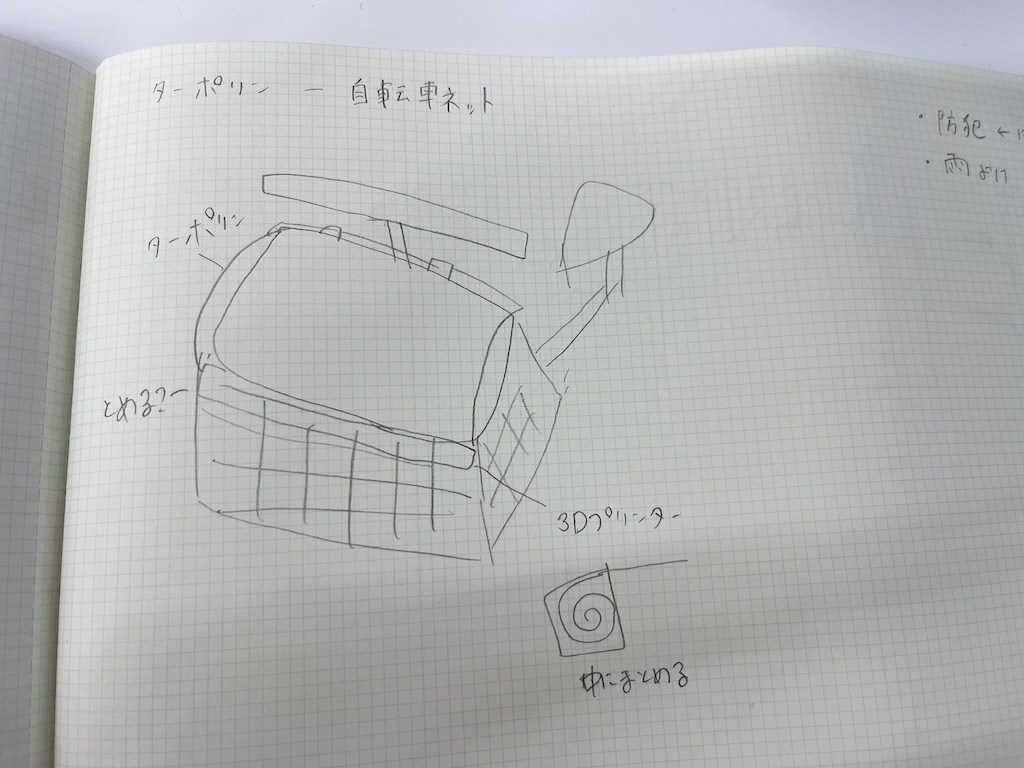 ターポリン ー 自転車ネット
・防犯 ←
・雨よけ
ターポリン
とめる?
3Dプリンター
中にまとめる